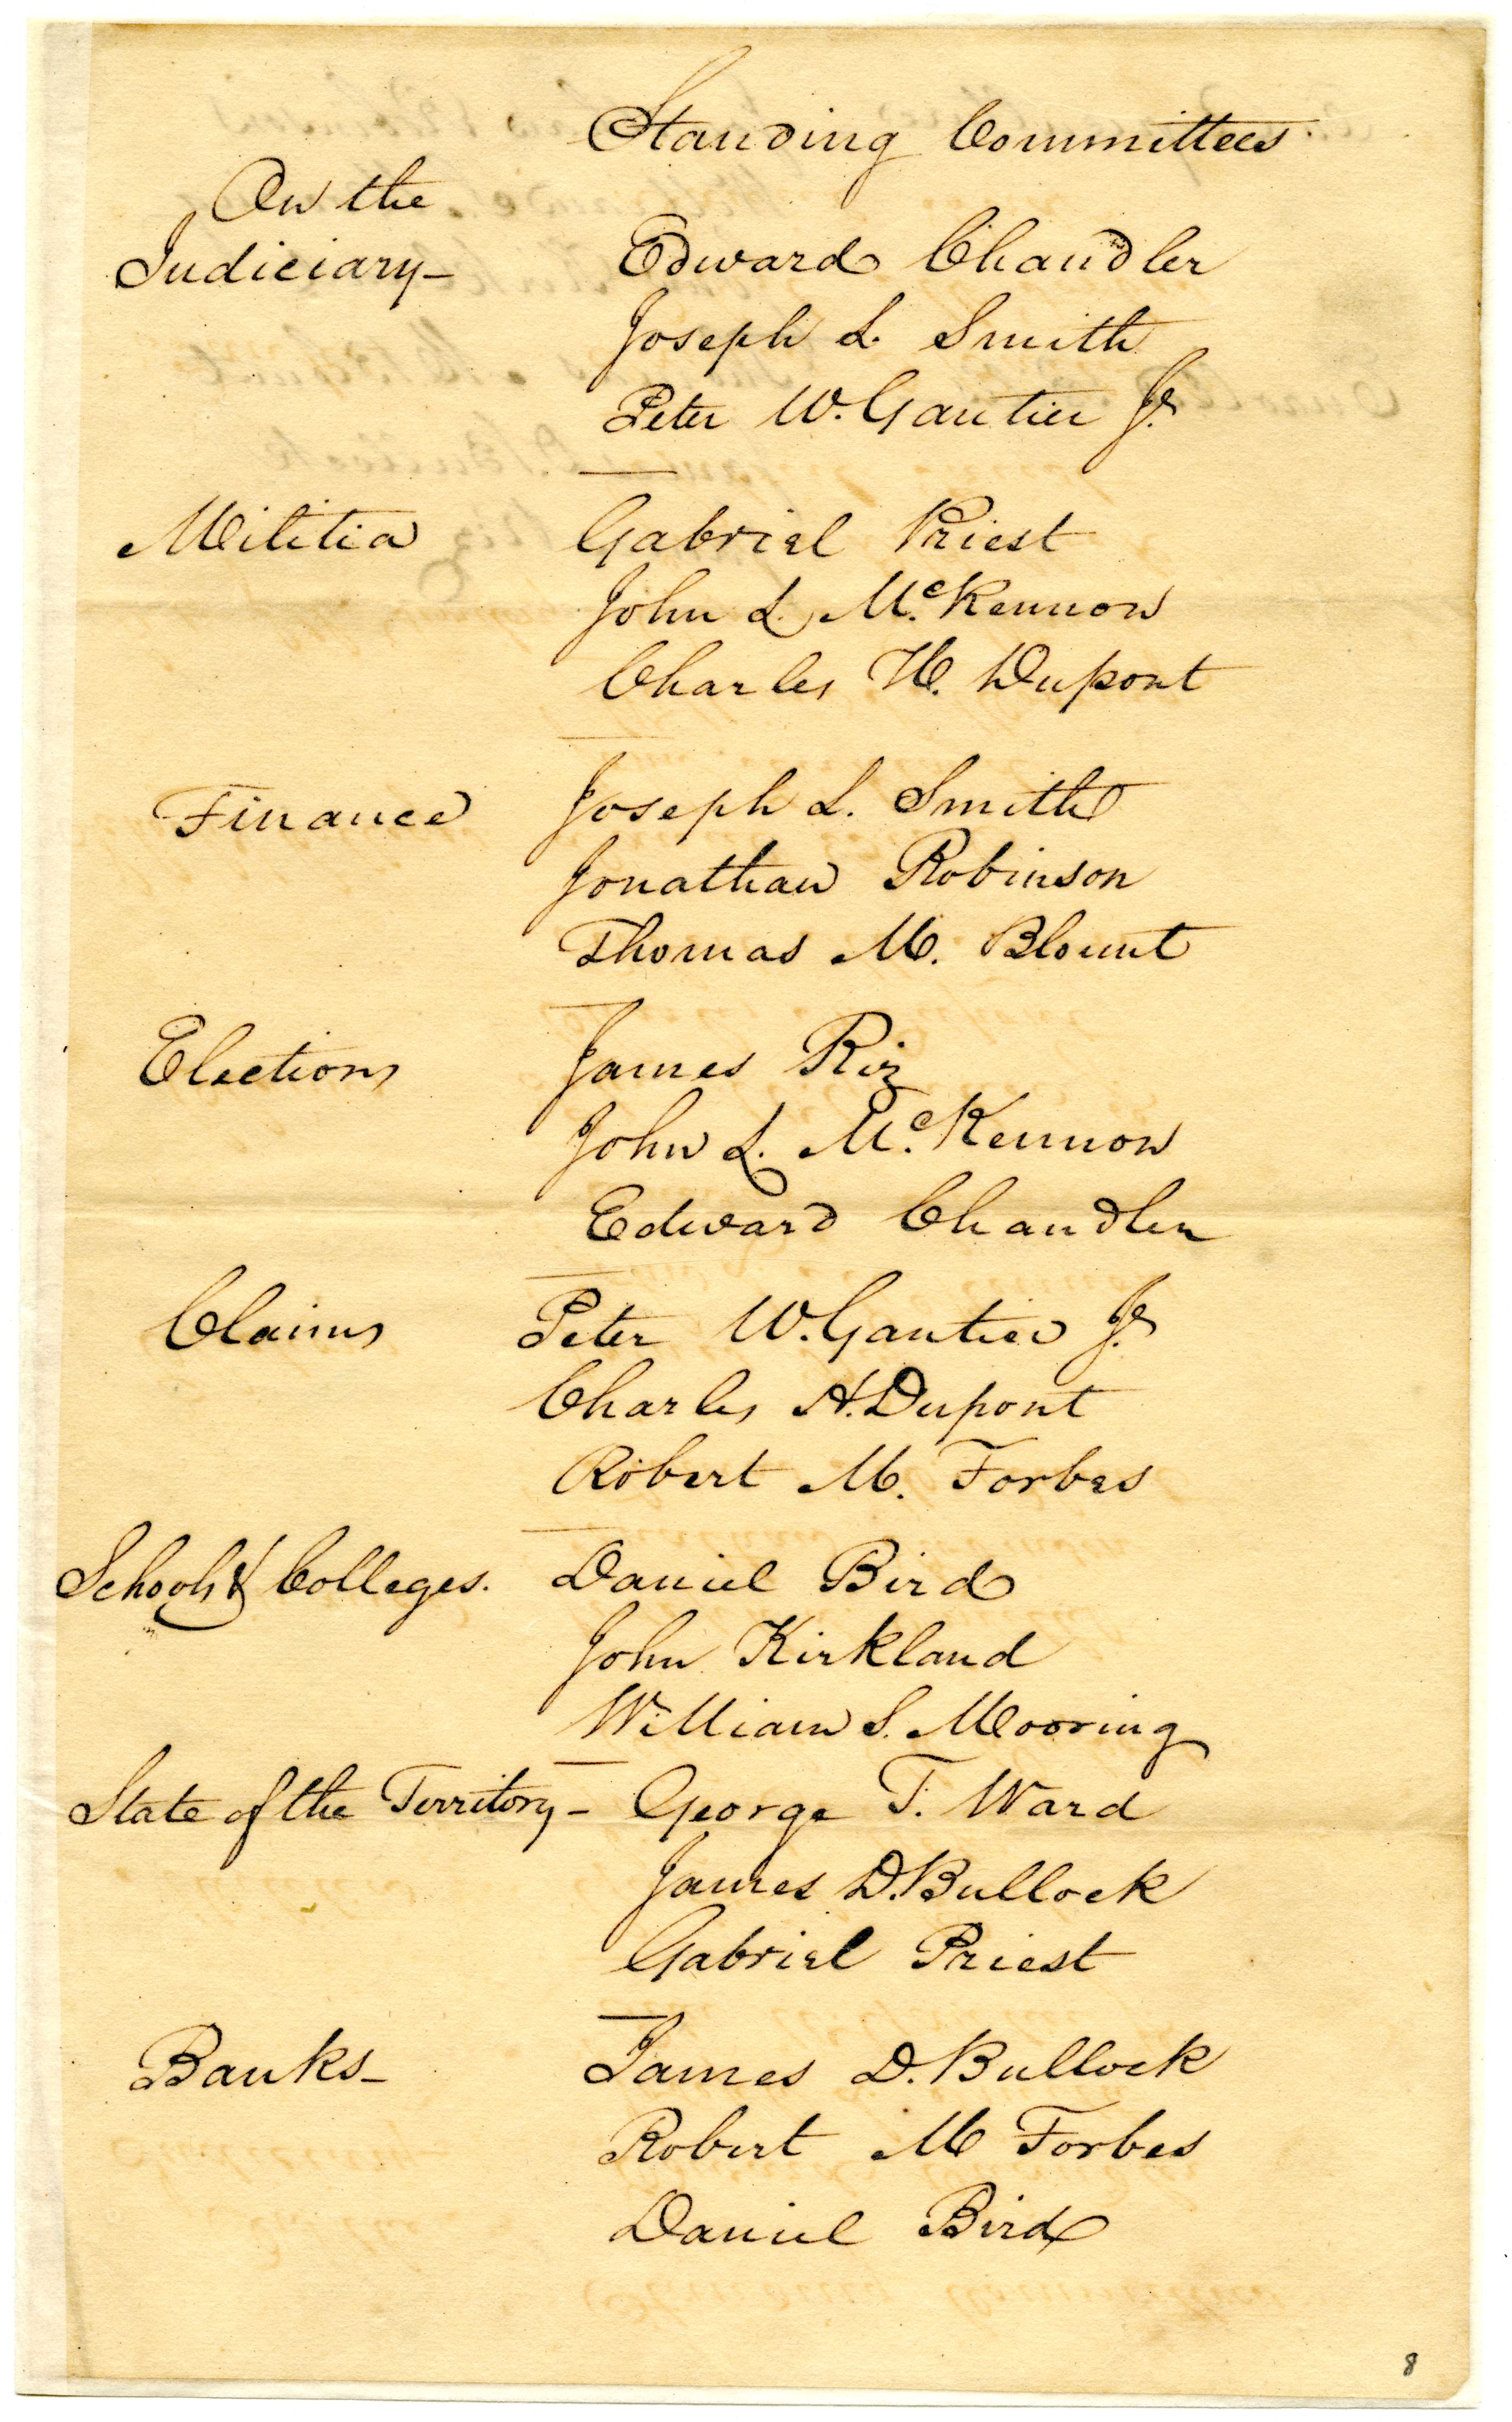 Standing Committees.
On the
Judiciary- Edward Chandler
Joseph L. Smith
Peter W. Gautier Jr.
Militia Gabriel Priest
John L. McKennon
Charles H. Dupont
Finance Joseph L. Smith
Jonathan Robinson
Thomas M. Blount
Elections James Riz
John L. McKennon
Edward Chandler
Claims Peter W. Gautier Jr.
Charles H. Dupont
Robert M. Forbes
Schools & Colleges. Daniel Bird
John Kirkland
William S. Mooring
State of the Territory- George T. Ward
James D. Bullock
Gabriel Priest
Banks- James D. Bullock
Robert M Forbes
Daniel Bird
8